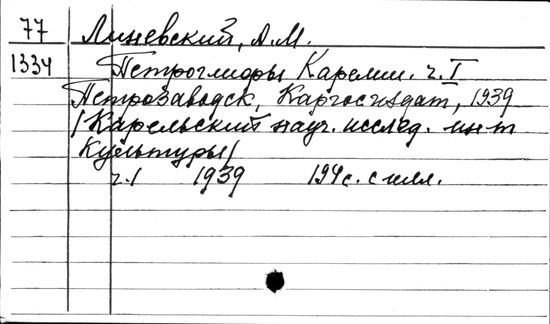 77 Линевский, А.М.
1334 Петроглифы Карелии. ч. I
Петрозаводск, Каргосиздат, 1939
/Карельский науч. исслед. ин-т
культуры/
ч.1 1939 194 с. с илл.